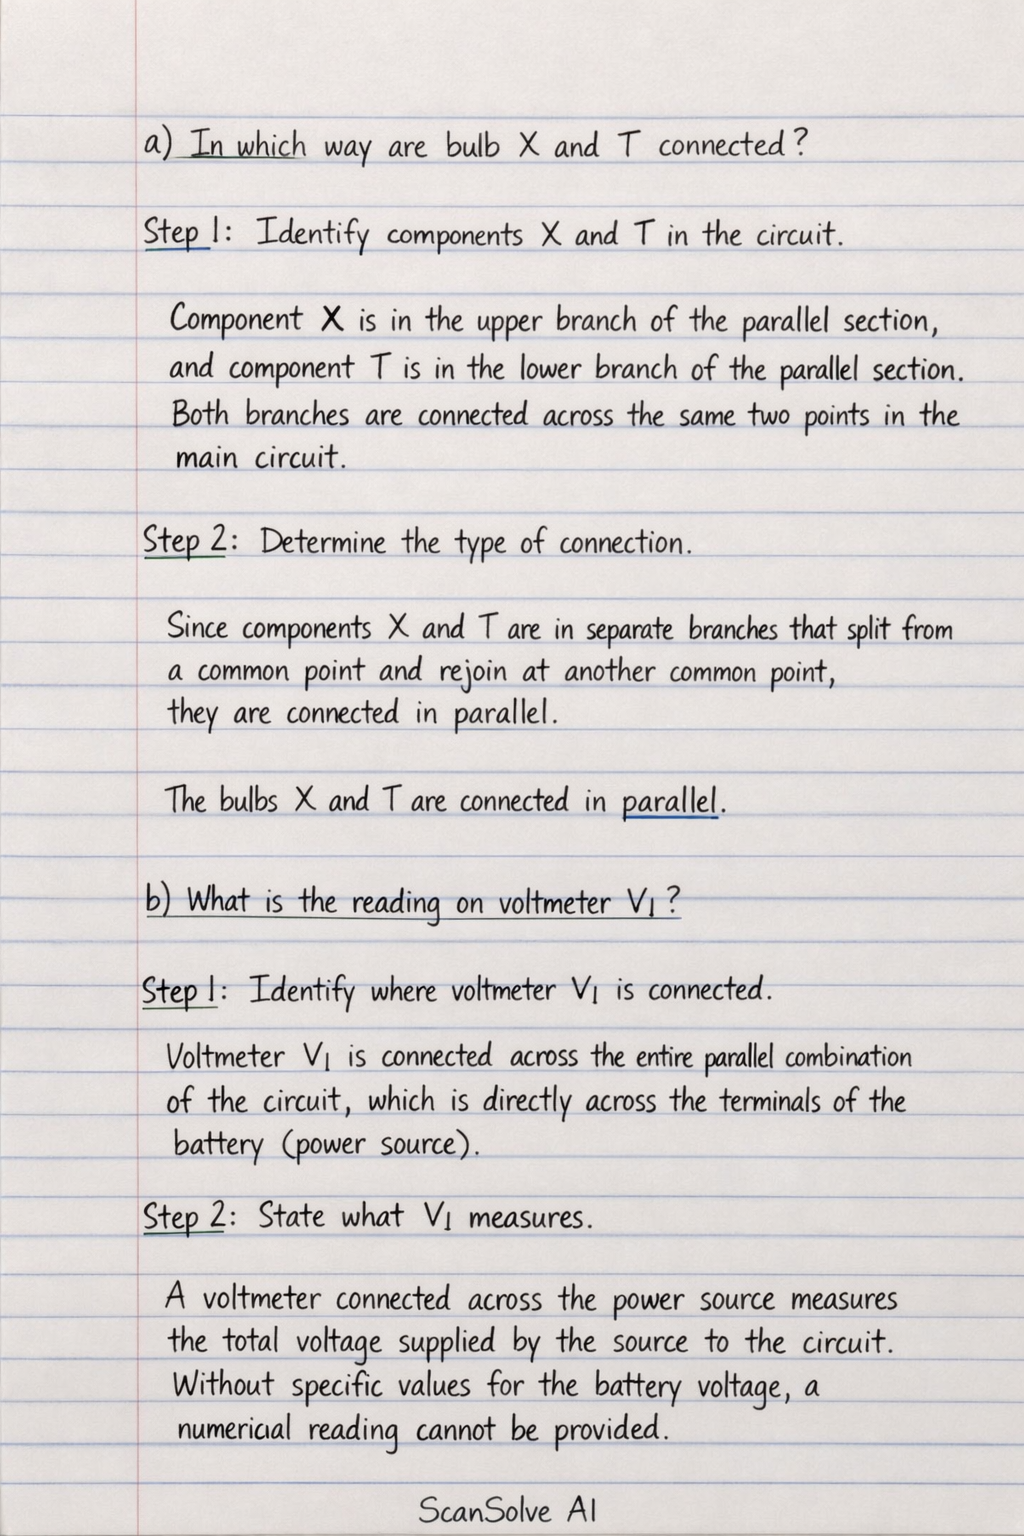 a) In which way are bulb X and T connected?
Step 1: Identify components X and T in the circuit.
Component X is in the upper branch of the parallel section,
and component T is in the lower branch of the parallel section.
Both branches are connected across the same two points in the
main circuit.
Step 2: Determine the type of connection.
Since components X and T are in separate branches that split from
a common point and rejoin at another common point,
they are connected in parallel.
The bulbs X and T are connected in parallel.
b) What is the reading on voltmeter V1?
Step 1: Identify where voltmeter V1 is connected.
Voltmeter V1 is connected across the entire parallel combination
of the circuit, which is directly across the terminals of the
battery (power source).
Step 2: State what V1 measures.
A voltmeter connected across the power source measures
the total voltage supplied by the source to the circuit.
Without specific values for the battery voltage, a
numericial reading cannot be provided.
ScanSolve AI